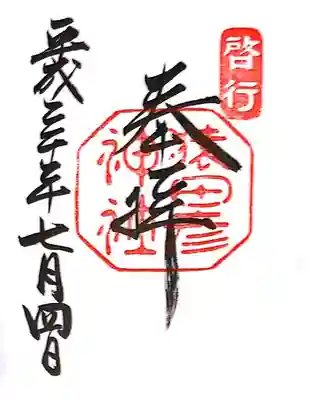 啓行
奉拝
猿田彦
神社
平成三十年七月四日